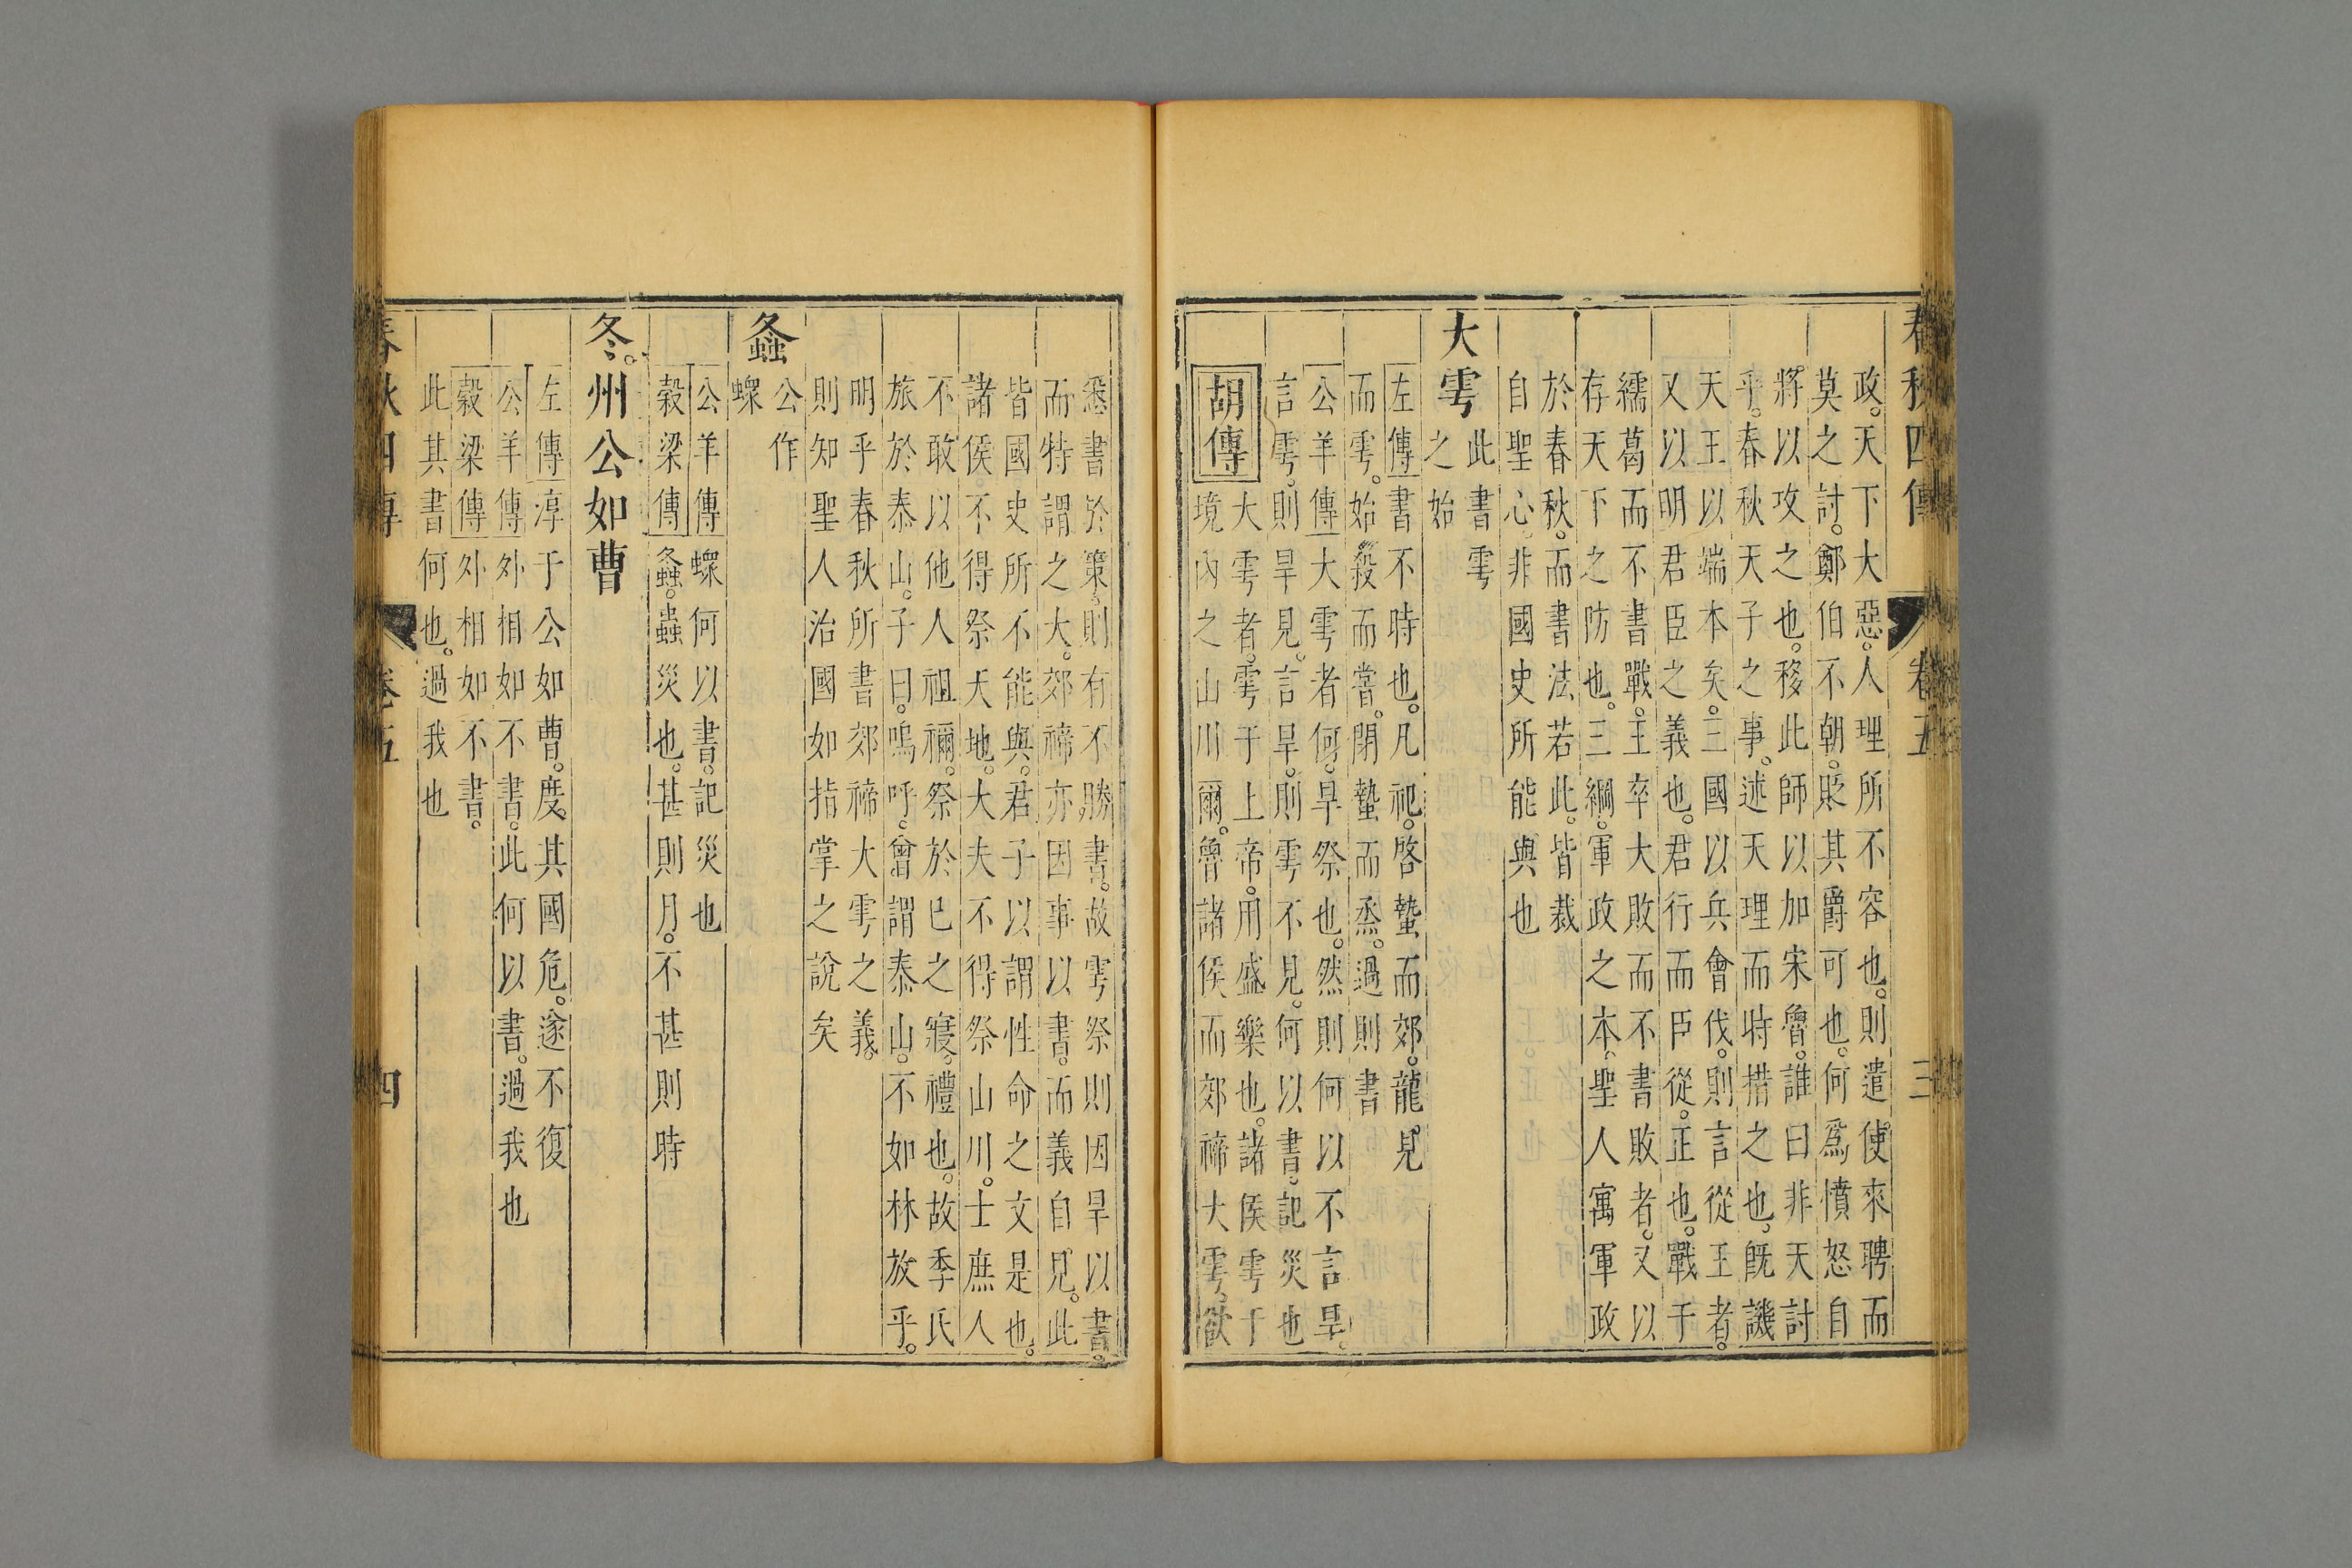 春秋四傳 卷五 三
政。天下大惡。人理所不容也。則遣使來聘而
莫之討。鄭伯不朝。貶其爵可也。何爲憤怒自
將以攻之也。移此師以加宋魯。誰曰非天討
乎。春秋天子之事。述天理而時措之也。旣譏
天王以端本矣。三國以兵會伐。則言從王者。
又以明君臣之義也。君行而臣從。正也。戰于
繻葛而不書戰。王卒大敗而不書敗者。又以
存天下之防也。三綱。軍政之本。聖人寓軍政
於春秋。而書法若此。皆裁
自聖心。非國史所能與也
大雩
此書雩
之始
左傳書不時也。凡祀。啓蟄而郊。龍見
而雩。始殺而嘗。閉蟄而烝。過則書
公羊傳大雩者何。旱祭也。然則何以不言旱。
言雩。則旱見。言旱。則雩不見。何以書。記災也
胡傳
大雩者。雩于上帝。用盛樂也。諸侯雩于
境內之山川爾。魯諸侯而郊禘大雩。欲
悉書於策。則有不勝書。故雩祭則因旱以書。
而特謂之大。郊禘亦因事以書。而義自見。此
皆國史所不能與。君子以謂性命之文是也。
諸侯。不得祭天地。大夫不得祭山川。士庶人
不敢以他人祖禰。祭於已之寢。禮也。故季氏
旅於泰山。子曰。嗚呼。曾謂泰山。不如林放乎。
明乎春秋所書郊禘大雩之義。
則知聖人治國如指掌之說矣
螽
公作
蝝
公羊傳蝝何以書。記災也
穀梁傳螽。蟲災也。甚則月。不甚則時
冬。州公如曹
左傳淳于公如曹。度其國危。遂不復
公羊傳外相如不書。此何以書。過我也
穀梁傳外相如不書。
此其書何也。過我也
春秋四傳 卷五 四